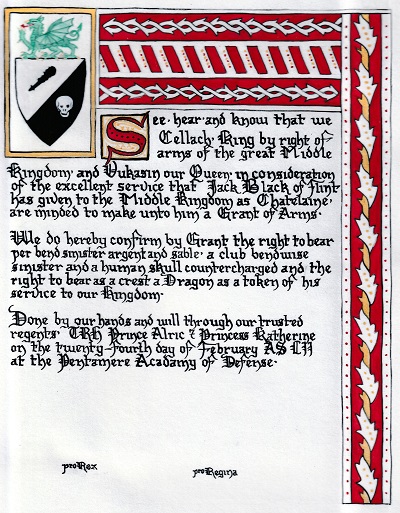 See, hear and know that we
Cellach King by right of
arms of the great Middle
Kingdom, and Vukasin our Queen, in consideration
of the excellent service that Jack Black of Flint
has given to the Middle Kingdom as Chatelaine,
are minded to make unto him a Grant of Arms.
We do hereby confirm by Grant the right to bear
per bend sinister argent and sable, a club bendwise
sinister and a human skull countercharged and the
right to bear as a crest a Dragon as a token of his
service to our Kingdom.
Done by our hands and will through our trusted
regents, TRH Prince Alric & Princess Katherine
on the twenty-fourth day of February AS LII
at the Pentamere Academy of Defense.
proRex proRegina